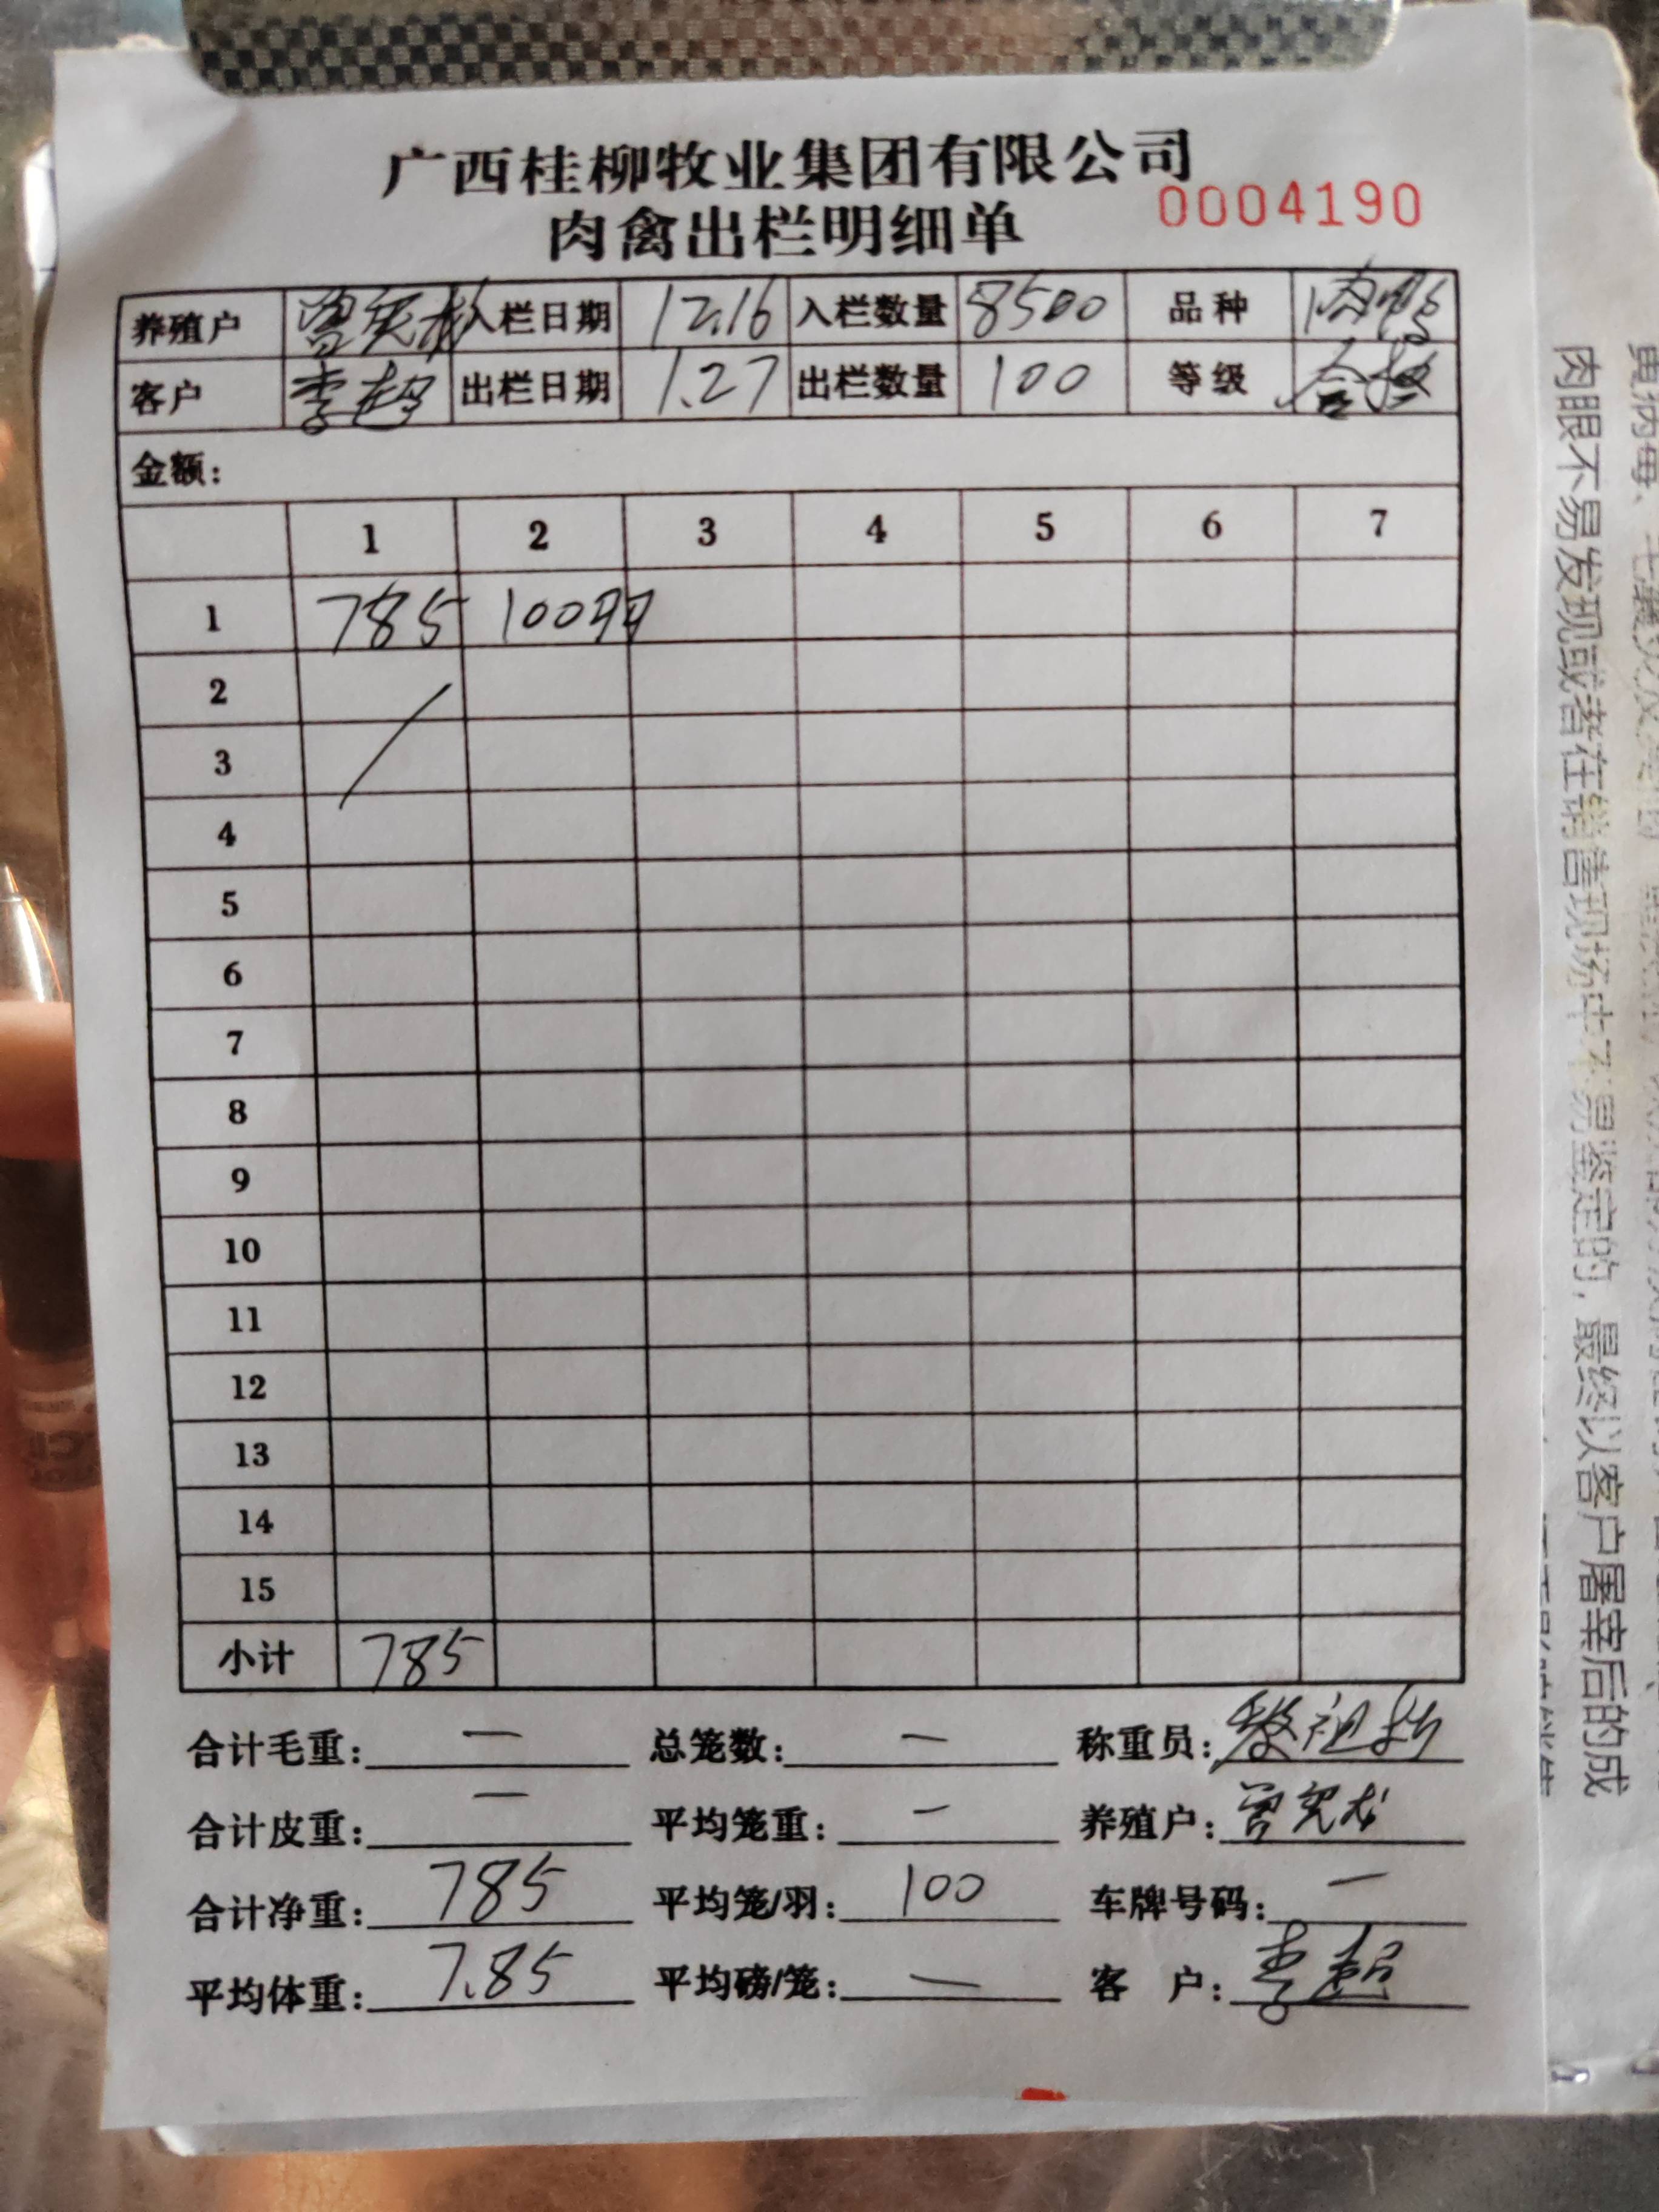 广西桂柳牧业集团有限公司
肉禽出栏明细单 0004190
养殖户 入栏日期 12.16 入栏数量 8500 品种 肉鸭
客户 李超 出栏日期 1.27 出栏数量 100 等级 合格
金额:
1 2 3 4 5 6 7
1 785 100羽
2
3
4
5
6
7
8
9
10
11
12
13
14
15
小计 785
合计毛重: — 总笼数: — 称重员:
合计皮重: — 平均笼重: — 养殖户:
合计净重: 785 平均笼/羽: 100 车牌号码: —
平均体重: 7.85 平均磅/笼: — 客户: 李超
肉眼不易发现或者在销售现场中不易鉴定的, 最终以客户屠宰后的成